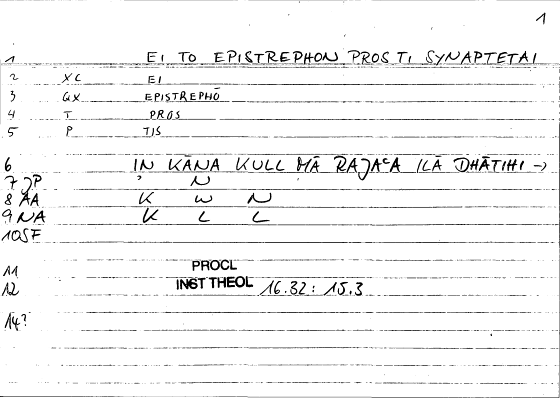 1
1 EI TO EPISTREPHON PROS TI SYNAPTETAI
2 XC EI
3 GX EPISTREPHŌ
4 T PROS
5 P TIS
6 IN KĀNA KULL MĀ RAJAᶜA ILĀ DHĀTIHI →
7 JP ' N
8 AA K W N
9 NA K L L
10 SF
11 PROCL
12 INST THEOL 16.32: 15.3
14?